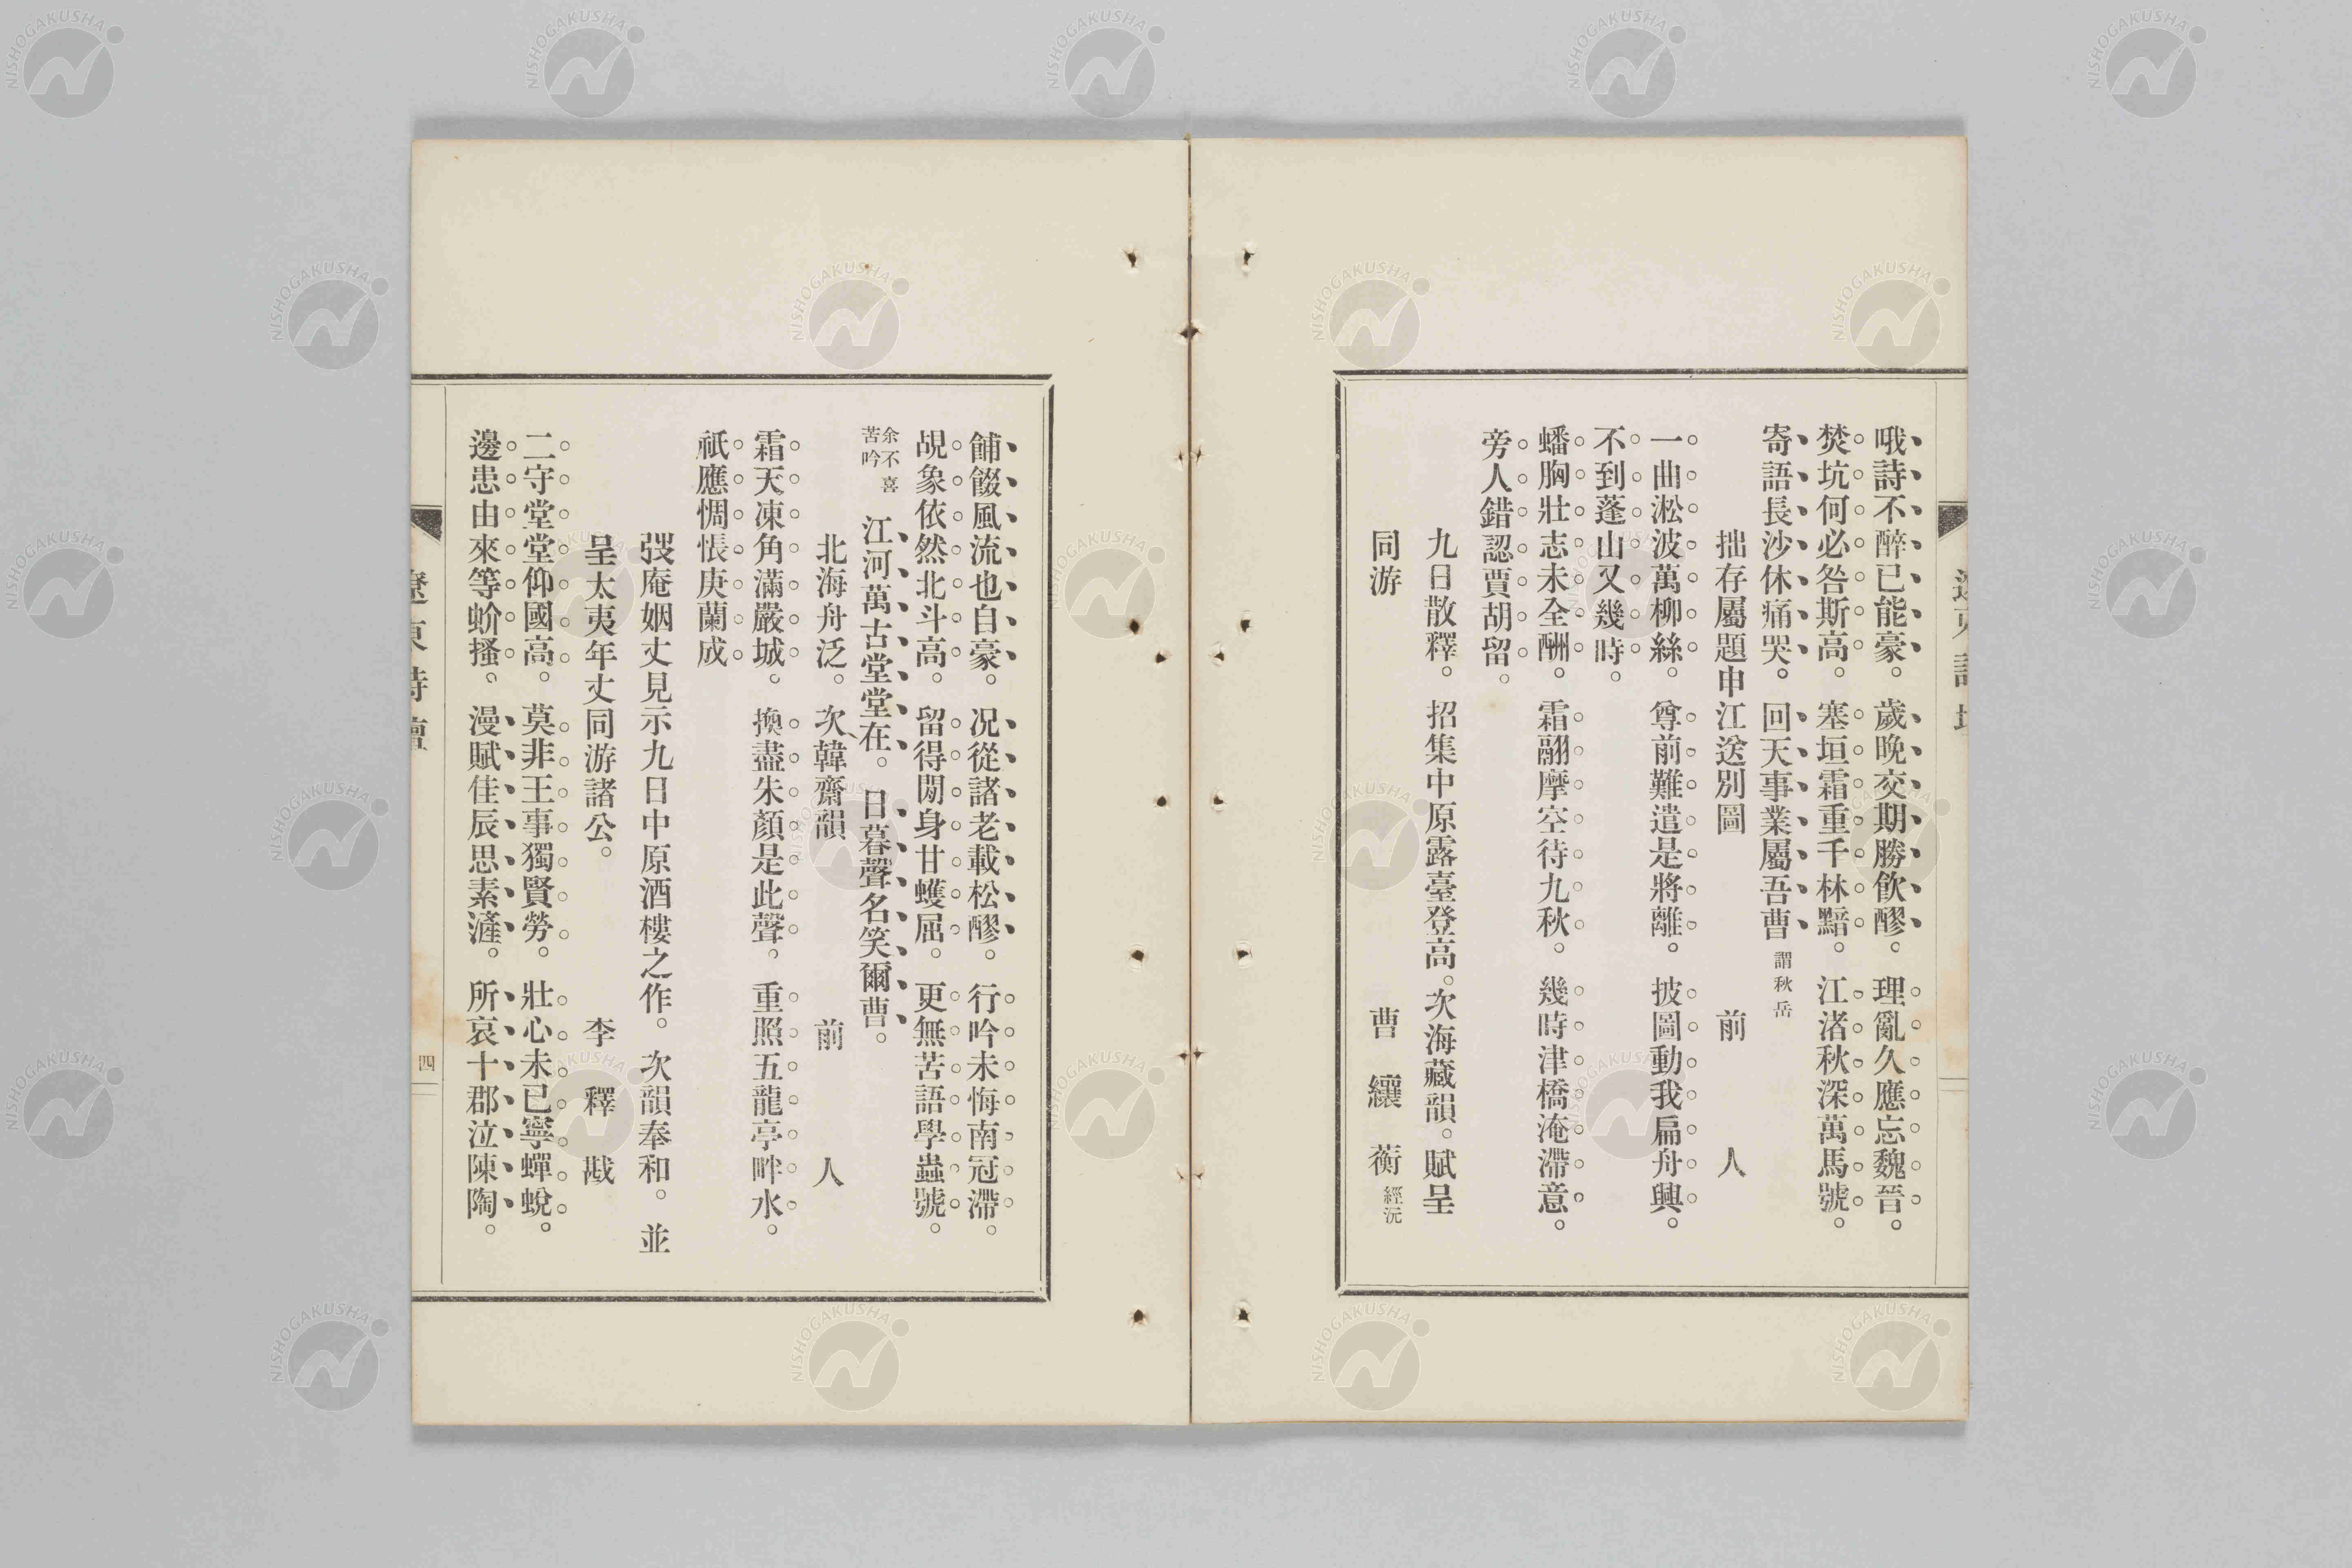 哦詩不醉已能豪。歲晩交期勝飮醪。理亂久應忘魏晉。
焚坑何必咎斯高。塞垣霜重千林黯。江渚秋深萬馬號。
寄語長沙休痛哭。回天事業屬吾曹謂秋岳
拙存屬題申江送別圖　前人
一曲淞波萬柳絲。尊前難遣是將離。披圖動我扁舟興。
不到蓬山又幾時。
蟠胸壯志未全酬。霜翮摩空待九秋。幾時津橋淹滯意。
旁人錯認賈胡留。
九日散釋。招集中原露臺登高。次海藏韻。賦呈
同游　曹纕蘅經沅
餔餟風流也自豪。况從諸老載松醪。行吟未悔南冠滯。
覘象依然北斗高。留得閒身甘蠖屈。更無苦語學蟲號。
余不喜苦吟　江河萬古堂堂在。日暮聲名笑爾曹。
北海舟泛。次韓齋韻　前人
霜天凍角滿嚴城。換盡朱顏是此聲。重照五龍亭畔水。
祇應惆悵庚蘭成
弢庵姻丈見示九日中原酒樓之作。次韻奉和。並
呈太夷年丈同游諸公。　李釋戡
二守堂堂仰國高。莫非王事獨賢勞。壯心未已寧蟬蛻。
邊患由來等蚧搔。漫賦佳辰思素滻。所哀十郡泣陳陶。
遼東詩壇
四
NISHOGAKUSHA